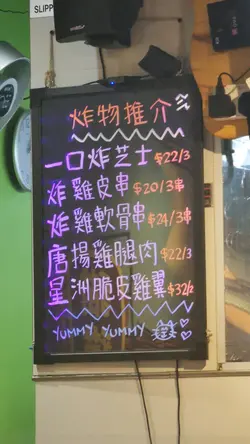 SLIPP
炸物推介
一口炸芝士 $22/3
炸雞皮串 $20/3串
炸雞軟骨串 $24/3串
唐揚雞腿肉 $22/3
星洲脆皮雞翼 $32/2
YUMMY YUMMY